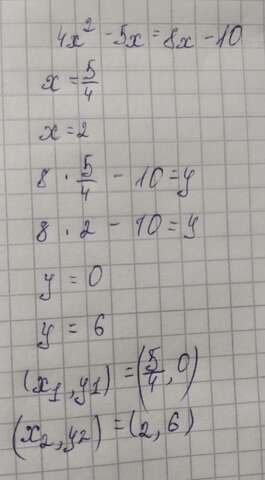 4x² - 5x = 8x - 10
x = 5/4
x = 2
8 · 5/4 - 10 = y
8 · 2 - 10 = y
y = 0
y = 6
(x₁, y1) = (5/4, 0)
(x₂, y2) = (2, 6)